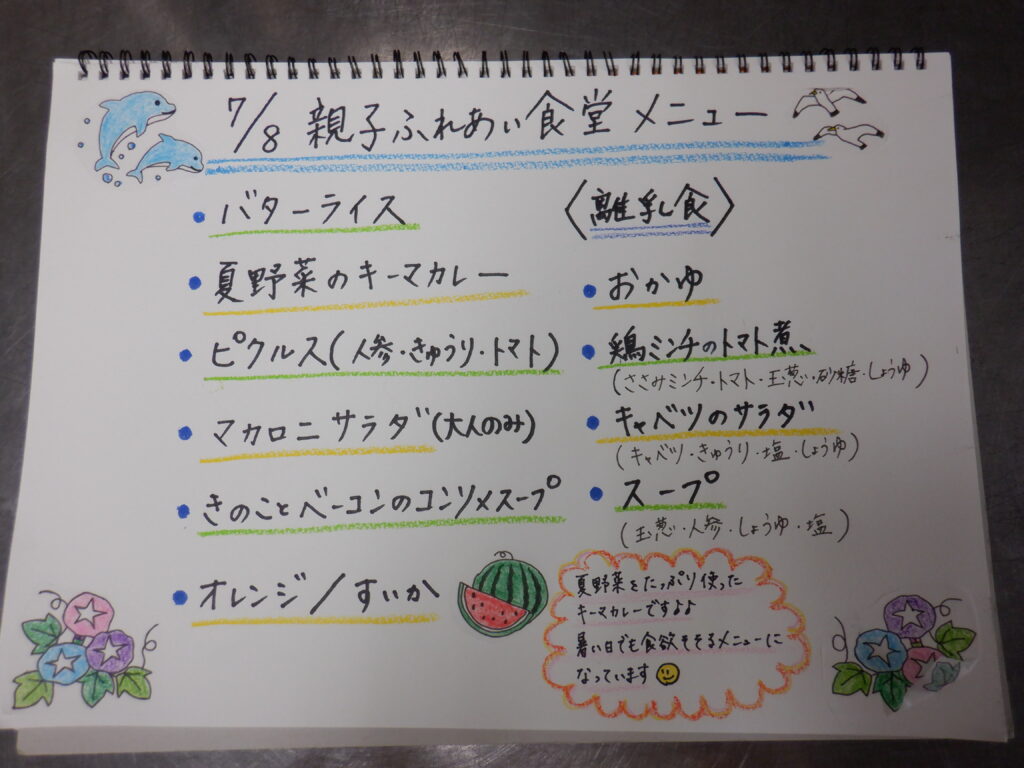 7/8 親子ふれあい食堂 メニュー
・バターライス
・夏野菜のキーマカレー
・ピクルス(人参・きゅうり・トマト)
・マカロニサラダ(大人のみ)
・きのことベーコンのコンソメスープ
・オレンジ/すいか
〈離乳食〉
・おかゆ
・鶏ミンチのトマト煮
(ささみミンチ・トマト・玉葱・砂糖・しょうゆ)
・キャベツのサラダ
(キャベツ・きゅうり・塩・しょうゆ)
・スープ
(玉葱・人参・しょうゆ・塩)
夏野菜をたっぷり使った
キーマカレーですよ♪
暑い日でも食欲そそるメニューに
なっています